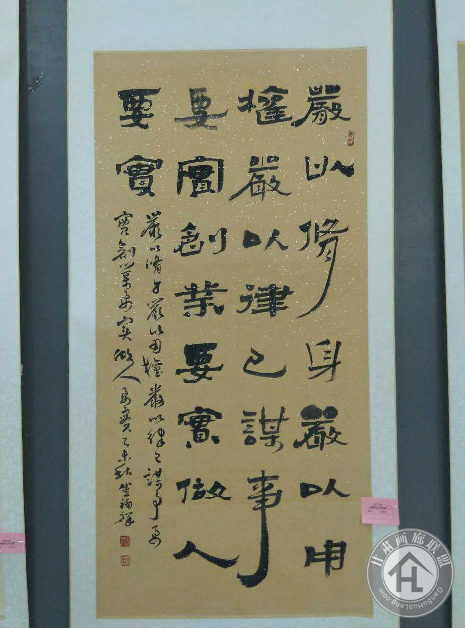 嚴以修身嚴以用
權嚴以律己謀事
要實創業要實做人
要實
嚴以修身嚴以用權嚴以律己謀事要
實創業要實做人要實乙未秋
甘州画廊联盟
GanSuHuaLang.com